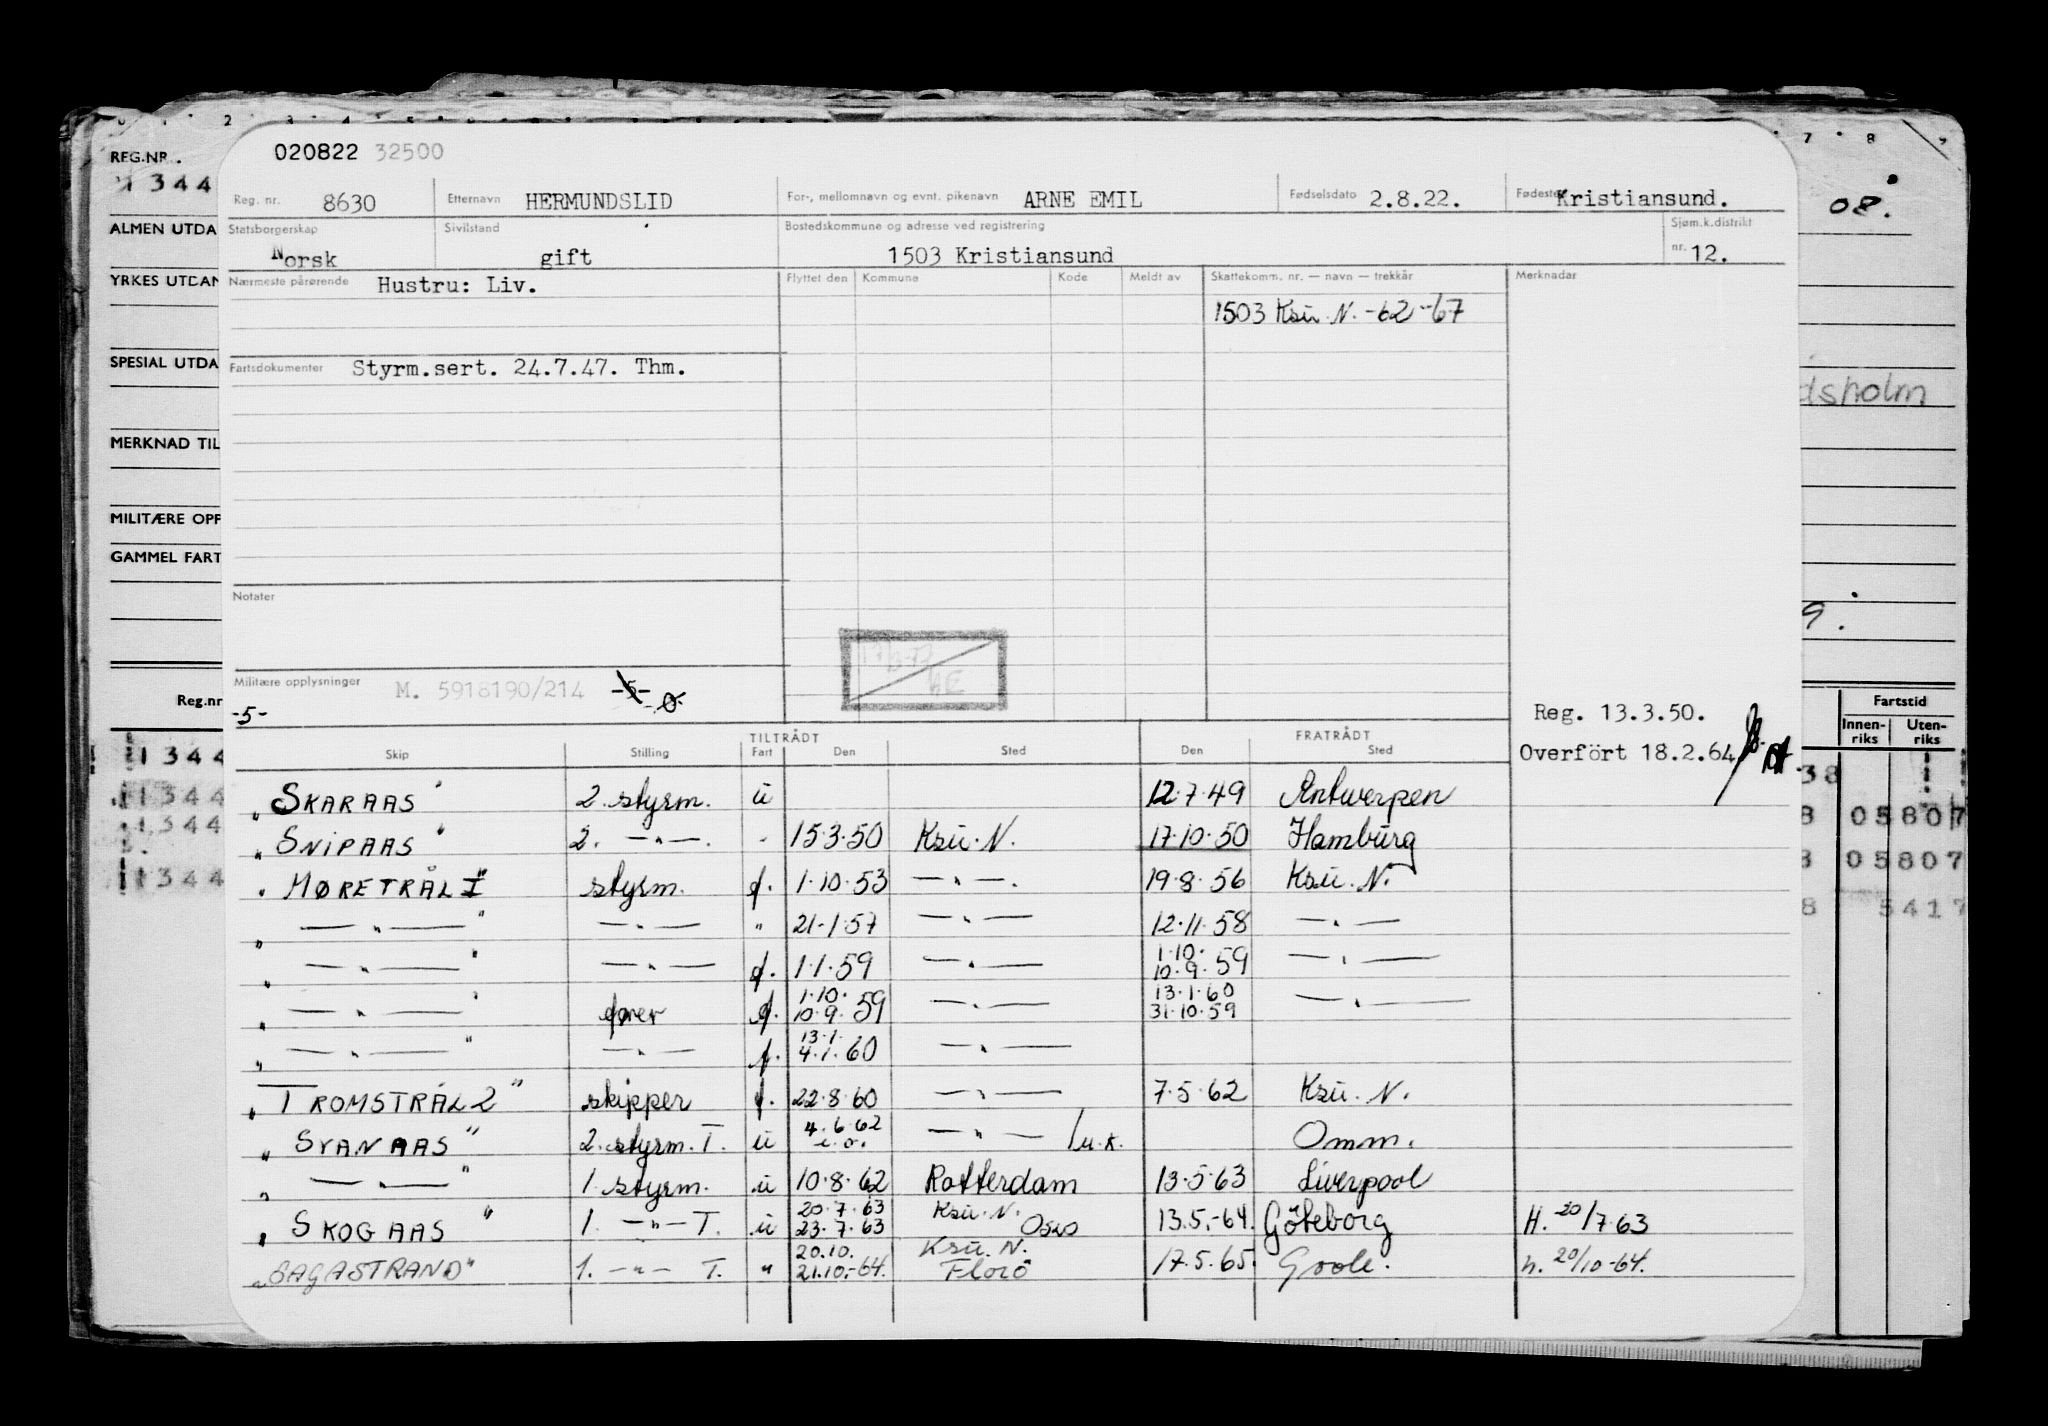 020822 32500
Reg. nr. 8630 Etternavn HERMUNDSLID For-, mellomnavn og evnt. pikenavn ARNE EMIL Fødselsdato 2.8.22. Fødested Kristiansund.
Statsborgerskap Norsk Sivilstand gift Bostedskommune og adresse ved registrering 1503 Kristiansund Sjøm.k.distrikt nr. 12.
Nærmeste pårørende Hustru: Liv. Flyttet den Kommune Kode Meldt av Skattekomm. nr. — navn — trekkår Merknader
1503 Ksu. N. -62 -67
Fartsdokumenter Styrm.sert. 24.7.47. Thm.
Notater
Militære opplysninger M. 5918190/214 -5-
-5-
Reg. 13.3.50.
Overført 18.2.64
TILTRÅDT FRATRÅDT
Skip Stilling Fart Den Sted Den Sted
„SKARAAS" 2. styrm. u 12.7.49 Antwerpen
„SNIPAAS" 2. —"—. 15.3.50 Ksu. N. 17.10.50 Hamburg
„MØRETRÅL I" styrm. f. 1.10.53 —"—. 19.8.56 Ksu. N.
„ —"— " —"— " 21.1.57 —"— 12.11.58 —"—
„ —"— " —"— f. 1.1.59 —"— 1.10. 10.9.59 —"—
„ —"— " fører f. 1.10. 10.9.59 —"— 13.1.60 31.10.59 —"—
„ —"— " —"— f. 13.1. 4.1.60 —"—
„TROMSTRÅL 2" skipper f. 22.8.60 —"— 7.5.62 Ksu. N.
„SVANAAS" 2. styrm. T. u 4.6.62 —"— / u.k. Omm.
„ —"— " 1. styrm. u 10.8.62 Rotterdam 13.5.63 Liverpool
„SKOGAAS" 1. —"— T. u 20.7.63 23.7.63 Ksu. N. Oslo 13.5.-64. Göteborg H. 20/7.63
„SAGASTRAND" 1. —"— T. " 20.10. 21.10.-64. Ksu. N. Florø 17.5.65. Goole. h. 20/10-64.
REG.NR.
1344
ALMEN UTDA
YRKES UTDAN
SPESIAL UTDA
MERKNAD TIL
MILITÆRE OPP
GAMMEL FART
Reg.nr
1344
1344
1344
1344
08.
dsholm
9.
Fartstid
Innen-riks Uten-riks
38
8 05807
8 05807
8 5417